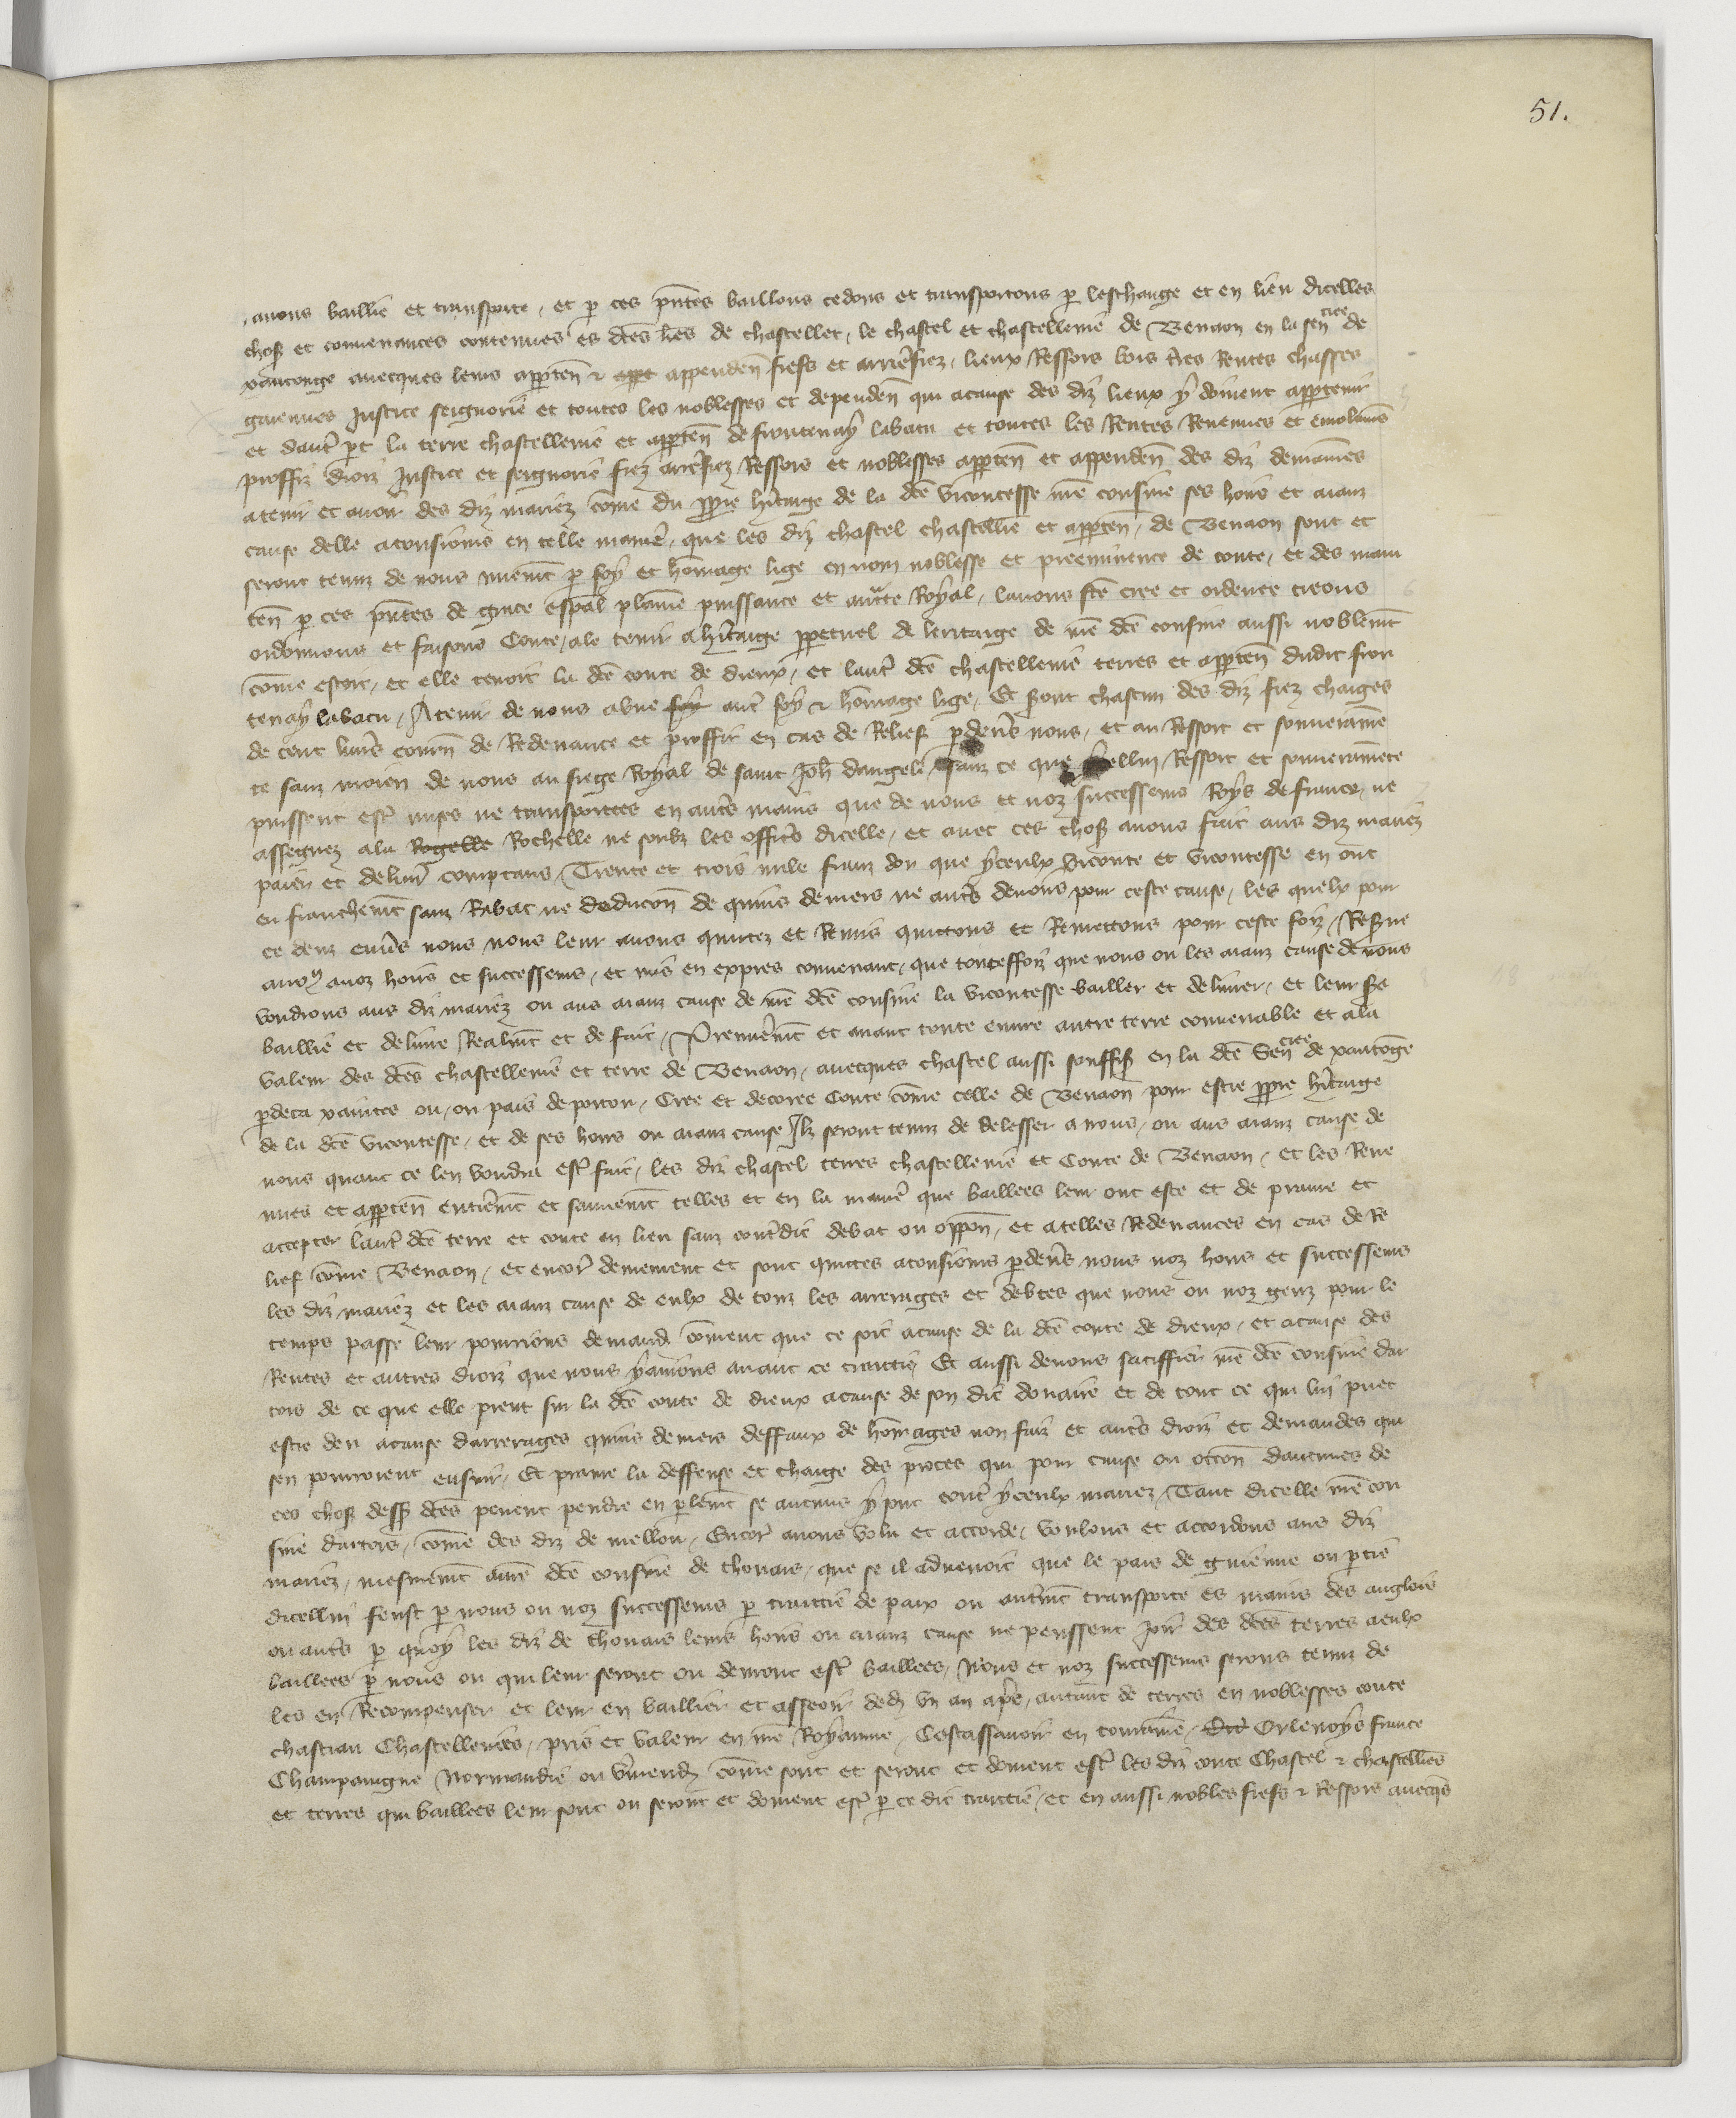 51.
auons baillie et transporte, et p ces pntes baillons cedons et transportons p leschange et en lieu dicelles
choses et conuenances contenues es dces lres de chastellet, le chastel et chastellenie de Benaon en la sencie de
xantonge auecques leurs apptenn & appendenn fiefs et arrierefiez, lieux Ressors bois tres Rentes chasses
garennes Justice seignorie et toutes les noblesses et dependenn qui acause des diz lieux y doiuent apptenir
et dautr pt la terre chastellenie et apptenn de frontenay labatu et toutes les Rentes Reuenues et emolumes
proffiz droiz Justice et seignorie fiez arrefiez Ressors et noblesses apptenn et appendenn des diz demaines
atenir et auoir des diz mariez come du ppre heritaige de la dce vicontesse nre cousine ses hoirs et aianz
cause delle atousiours en telle maniere, que les diz chastel chastellie et apptenn, de Benaon sont et
seront tenuz de nous nuement p foy et homage lige en nom noblesse et preeminence de conte, et des main
tenn p ces pntes de grace espal plaine puissance et aucte Royal, lauons fce cree et ordence creons
ordennons et faisons Conte, ale tenir a heritaige ppetuel de leritaige de nre dce cousine aussi noblemt
come estoit, et elle tenoit la dce conte de dreux, et lautr dce chastellenie terres et apptenn dudit fron
tenay labatu, Atenir de nous a vne autr foy & homage lige, Et seront chascun des diz fiez chargies
de cent liures tourn de Redeuance et proffit en cas de Relief pdeuers nous, et au Ressort et souuerainne
te sanz moien de nous au siege Royal de saint Joh dangeli, sanz ce que icellui Ressort et souuerainnete
puissent estr mises ne transportees en autres mains que de nous et noz successeurs Roys de france, ne
assegnez a la Rochelle ne soubz les offices dicelle, et auec ces choses auons fait aus diz mariez
paier et deliurer comptans Trente et trois mile franz dor que yceulx viconte et vicontesse en ont
eu franchemt sanz Rabat ne deducon de quins deniers ne autres deuoirs pour ceste cause, les quelx pour
ce deuz enuers nous nous leur auons quittez et Remis quittons et Remettons pour ceste foiz, Reserue
auons a noz hoirs et successeurs, et mis en expres conuenant, que touteffoiz que nous ou les aianz cause de nous
vendrons aus diz mariez ou aus aianz cause de nre dce cousine la vicontesse bailler et deliurer, et leur sera
baillie et deliure Realmt et de fait, Premierement et auant toute euure autre terre conuenable et ala
valeur des dces chastellenie et terre de Benaon, auecques chastel aussi souffis en la dce Sencie de xantonge
pdeca xainctes ou, ou pais de poitou, Cree et decoree Conte come celle de Benaon pour estre ppre heritaige
de la dce vicontesse, et de ses hoirs ou aianz cause Ilz seront tenuz de delesser a nous, ou aus aianz cause de
nous quant ce len voudra estr fait, les diz chastel terres chastellenie et Conte de Benaon, et les Reue
nues et apptenn entieremt et sainemt telles et en la maniere que baillees leur ont este et de prenre et
accepter lautr dce terre et conte en lieu sanz contredit debat ou opposn, et atelles Redeuances en cas de Re
lief come Benaon, et encor demeurent et sont quittes atousiours pdeuers nous noz hoirs et successeurs
les diz mariez et les aianz cause de eulx de touz les arrerages et debtes que nous ou noz genz pour le
temps passe leur pourrions demander coment que ce soit acause de la dce conte de dreux, et acause des
Rentes et autres droiz que nous y auions auant ce traittie Et aussi deuons satiffier nre dce cousine dar
tois de ce que elle prent sur la dce conte de dreux acause de son dit douaire et de tout ce qui lui puet
estre deu acause darrerages quins deniers deffaux de homages non faiz et autres droiz et demandes qui
sen pourroient ensuir, Et prenre la deffense et charge des proces qui pour cause ou occon daucunes de
ces choses dessus dces peuent pendre en plemt se aucuns y sont contr yceulx mariez, Tant dicelle nre cou
sine dartois, come des diz de mellou, Encor auons volu et accorde, voulons et accordons aus diz
mariez, mesmemt a nre dce cousine de thouars, que se il aduenoit que le pais de guienne ou ptie
dicellui feust p nous ou noz successeurs p traittie de paix ou autremt transporte es mains des anglois
ou autres p quoy les diz de thouars leurs hoirs ou aianz cause ne peussent Joir des dces terres a eulx
baillees p nous ou qui leur seront ou deuront estr baillees, Nous et noz successeurs serons tenuz de
les en Recompenser et leur en baillier et asseoir dedens vn an apres, autant de terres en noblesses conte
chastiau Chastellenies, pris et valeur en nre Royaume, Cestassauoir en touraine, Orlenoys france
Champaigne Normandie ou vermends come sont et seront et doiuent estr les diz conte Chastel & chastellies
et terres qui baillees leur sont ou seront et doiuent estr p ce dit traittie, et en aussi nobles fiefs & Ressors auecqs